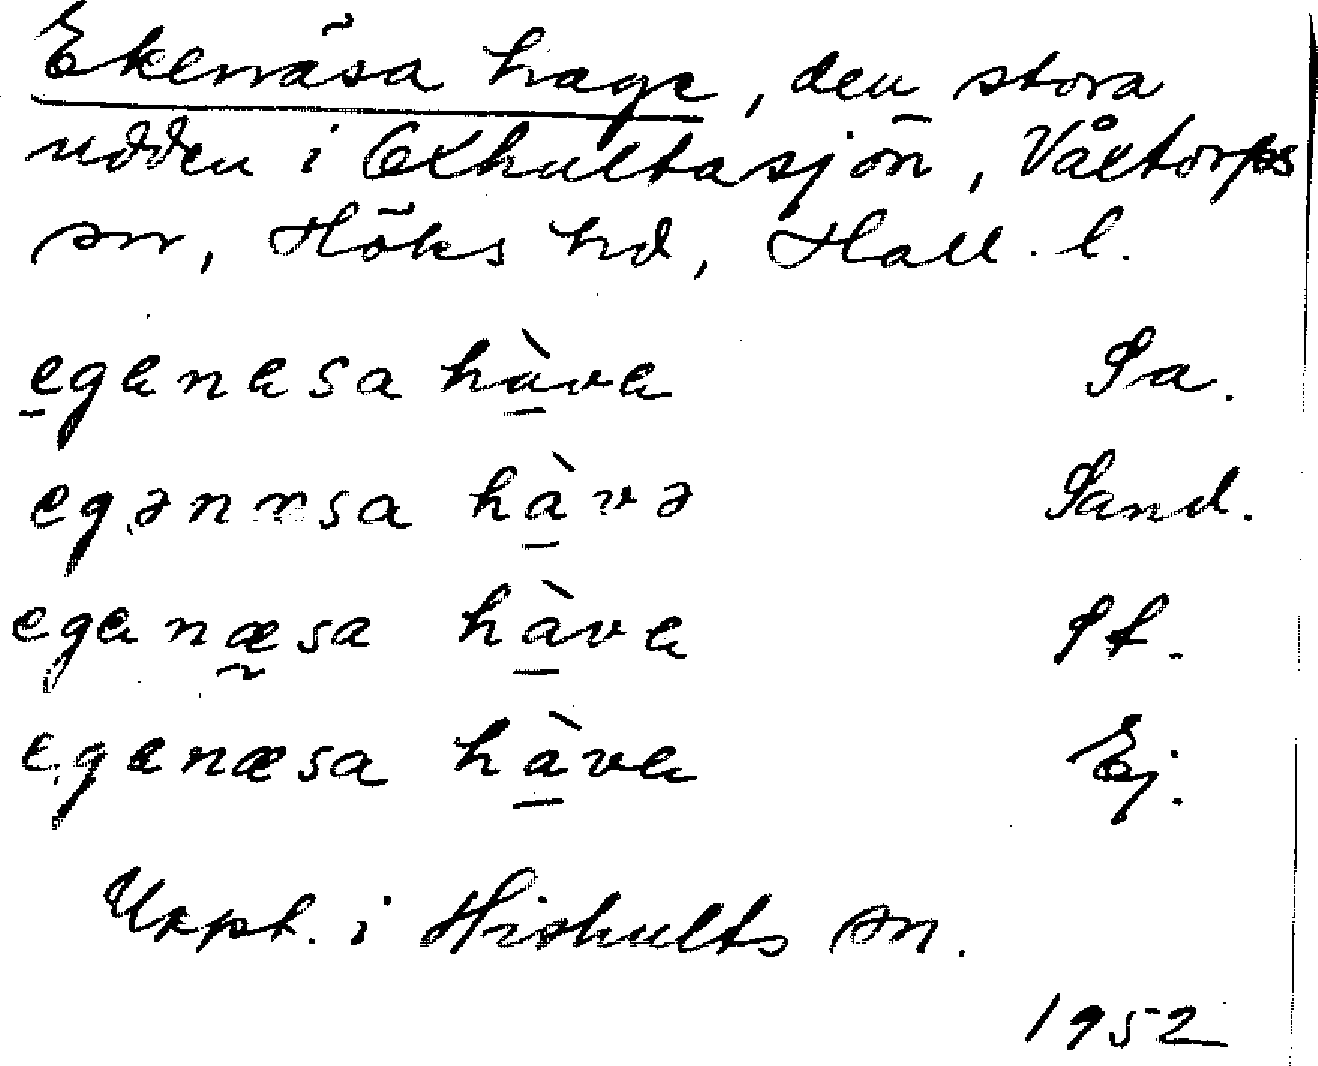 Ekenäsa hage, den stora
udden i Exhultasjön, Våxtorps
sn, Höks hd, Hall. l.
egenesa hàve Sa.
egənesa hàvə Sand.
egenæsa hàve St.
egenæsa hàve Ej.
Uppt. i Hishults sn.
1952